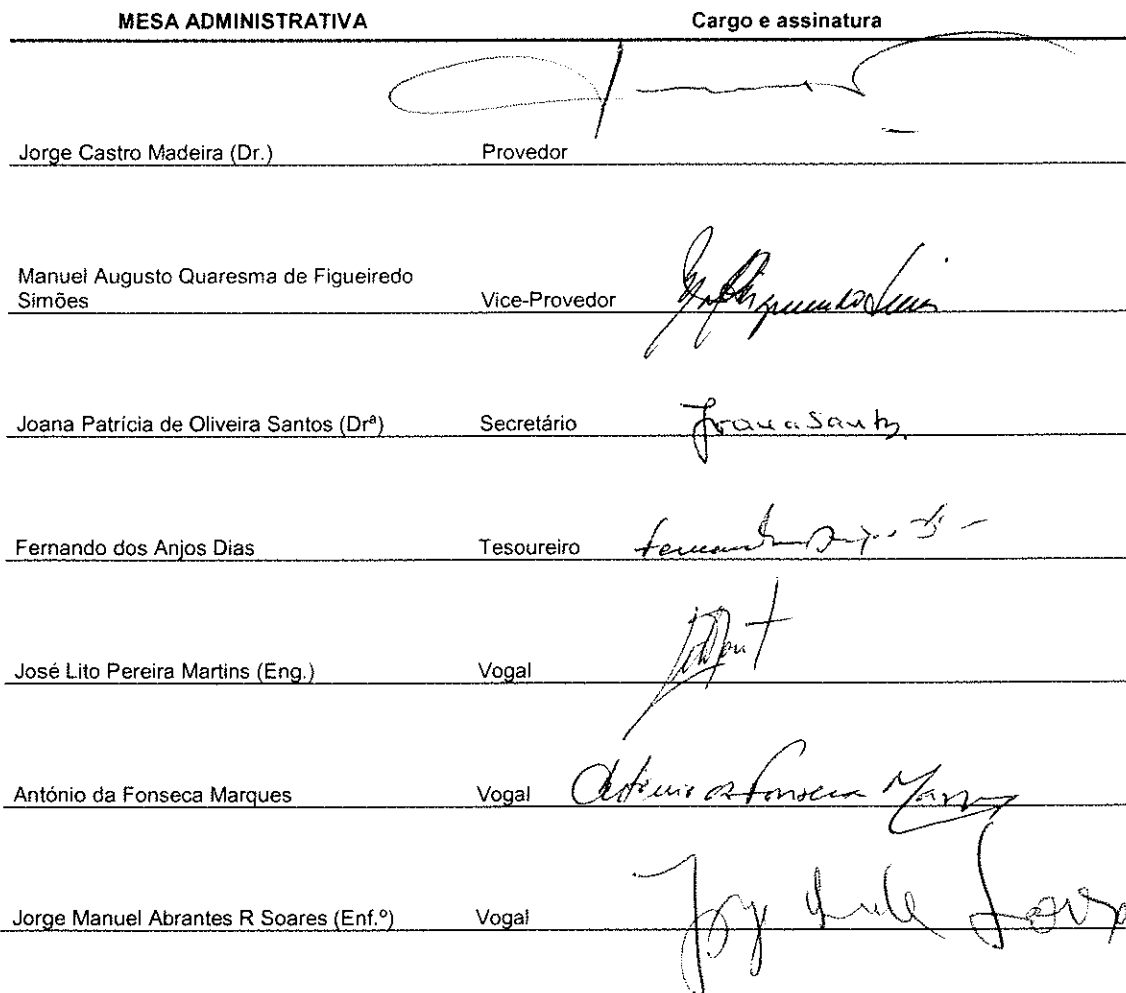 MESA ADMINISTRATIVA Cargo e assinatura
Jorge Castro Madeira (Dr.) Provedor
Manuel Augusto Quaresma de Figueiredo
Simões Vice-Provedor
Joana Patrícia de Oliveira Santos (Drª) Secretário Joana Santos
Fernando dos Anjos Dias Tesoureiro
José Lito Pereira Martins (Eng.) Vogal
António da Fonseca Marques Vogal António da Fonseca Marques
Jorge Manuel Abrantes R Soares (Enf.º) Vogal